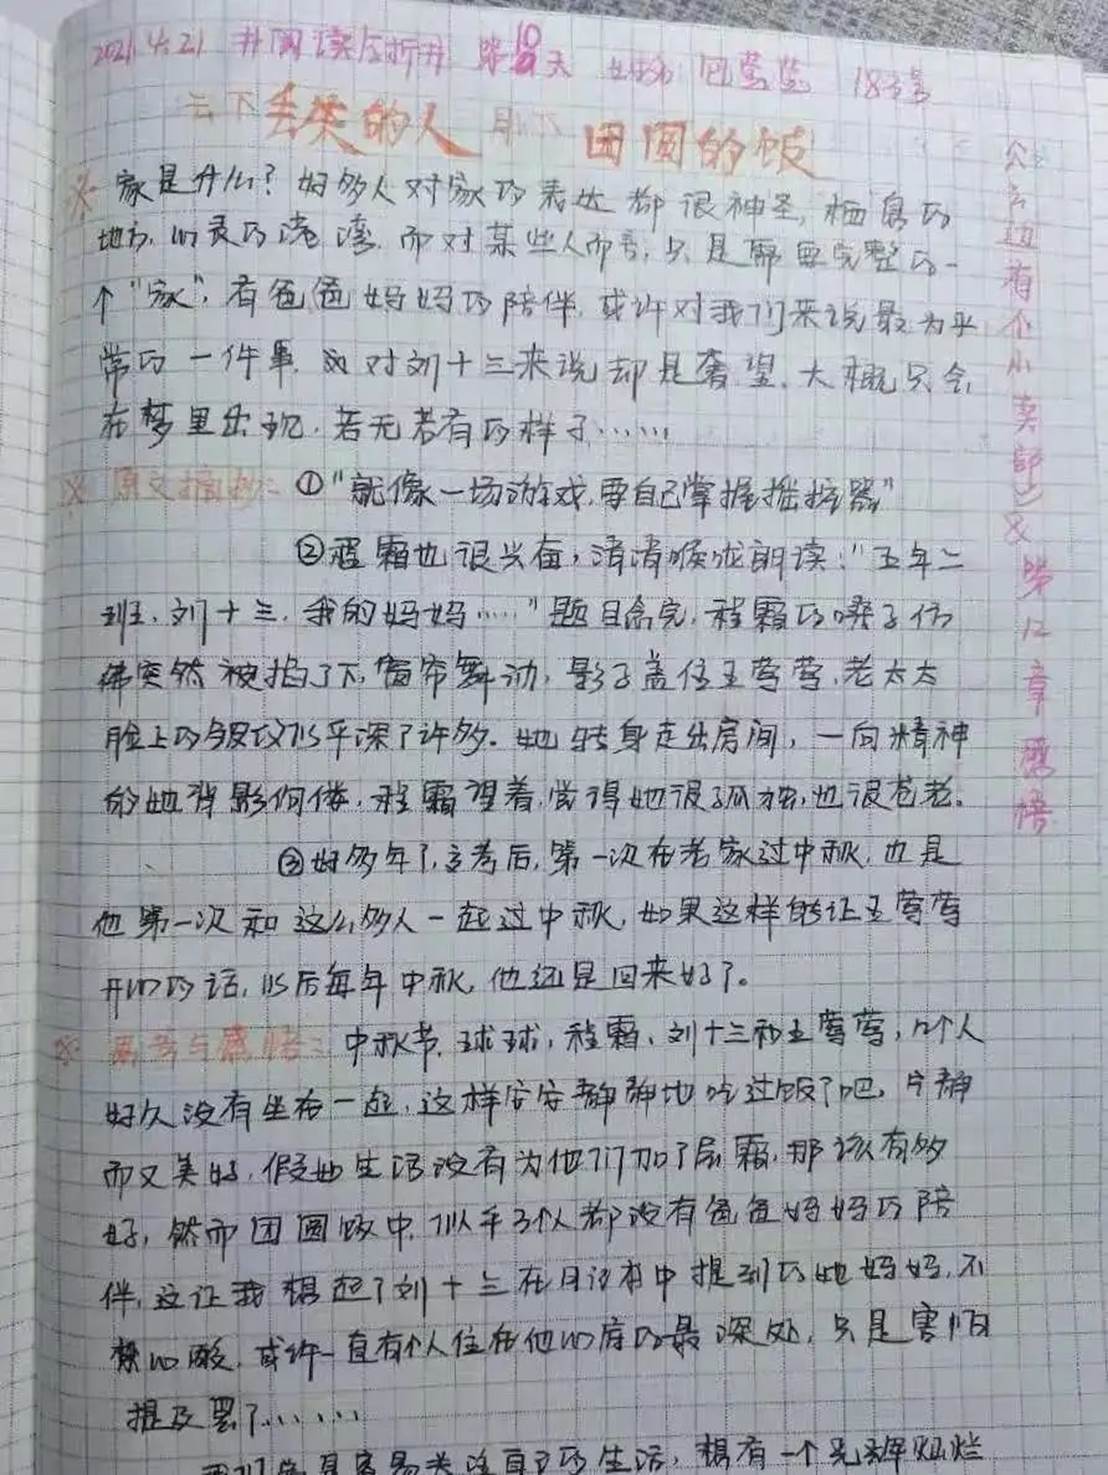 2021.4.21 #阅读 析# 第10天 18号
云下丢失的人 月下团圆的饭
家是什么？好多人对家的表达都很神圣，栖息的
地方，心灵的港湾，而对某些人而言，只是需要完整的一
个“家”，有爸爸妈妈的陪伴，或许对我们来说最为平
常的一件事，对刘十三来说却是奢望，大概只会
在梦里出现，若无若有的样子……
原文摘抄：①“就像一场游戏，要自己掌握摇控器”
②程霜也很兴奋，清清喉咙朗读：“五年二
班，刘十三，我的妈妈……”题目念完，程霜的嗓子仿
佛突然被掐了下，窗帘舞动，影子盖住王莺莺，老太太
脸上的皱纹似乎深了许多。她转身走出房间，一向精神
的她背影佝偻，程霜望着，觉得她很孤独，也很苍老。
③好多年了，高考后，第一次在老家过中秋，也是
他第一次和这么多人一起过中秋，如果这样能让王莺莺
开心的话，以后每年中秋，他还是回来好了。
思考与感悟：中秋节，球球，程霜，刘十三和王莺莺，几个人
好久没有坐在一起，这样安安静静地吃过饭了吧，宁静
而又美好，假如生活没有为他们加了层霜，那该有多
好，然而团圆饭中，似乎3个人都没有爸爸妈妈的陪
伴，这让我想起了刘十三在日记本中提到的他妈妈，不
禁心酸，或许一直有个人住在他心房的最深处，只是害怕
提及罢了……
我们总是容易关注自己的生活，想有一个光辉灿烂
《云边有个小卖部》&第12章 感悟